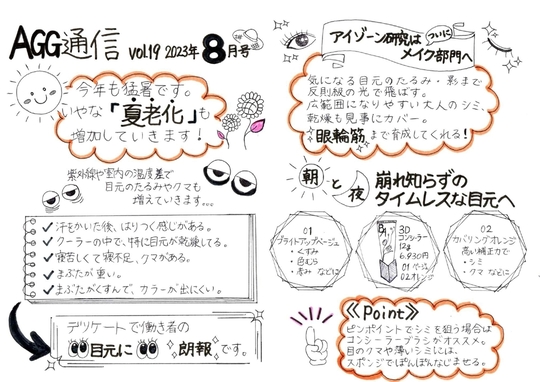 AGG通信 vol.19 2023年 8月号
今年も猛暑です。
いやな「夏老化」も
増加していきます！
紫外線や室内の温度差で
目元のたるみやクマも
増えていきます…
✓汗をかいた後、はりつく感じがある。
✓クーラーの中で、特に目元が乾燥してる。
✓寝苦しくて寝不足、クマがある。
✓まぶたが重い。
✓まぶたがくすんで、カラーが出にくい。
デリケートで働き者の
目元に朗報です。
アイゾーン研究はついに
メイク部門へ
気になる目元のたるみ・影まで
反射級の光で飛ばす。
広範囲になりやすい大人のシミ、
乾燥も見事にカバー。
眼輪筋まで育成してくれる！
朝と夜
崩れ知らずの
タイムレスな目元へ
01
ブライトアップベージュ
・くすみ
・色むら
・赤み などに
3D
コンシーラー
12g
6,930円
01 ベージュ
02 オレンジ
02
カバリングオレンジ
高い補正力で
・シミ
・クマ などに
《Point》
ピンポイントでシミを狙う場合は
コンシーラーブラシがオススメ。
目のクマや薄いシミには、
スポンジでぽんぽんなじませる。